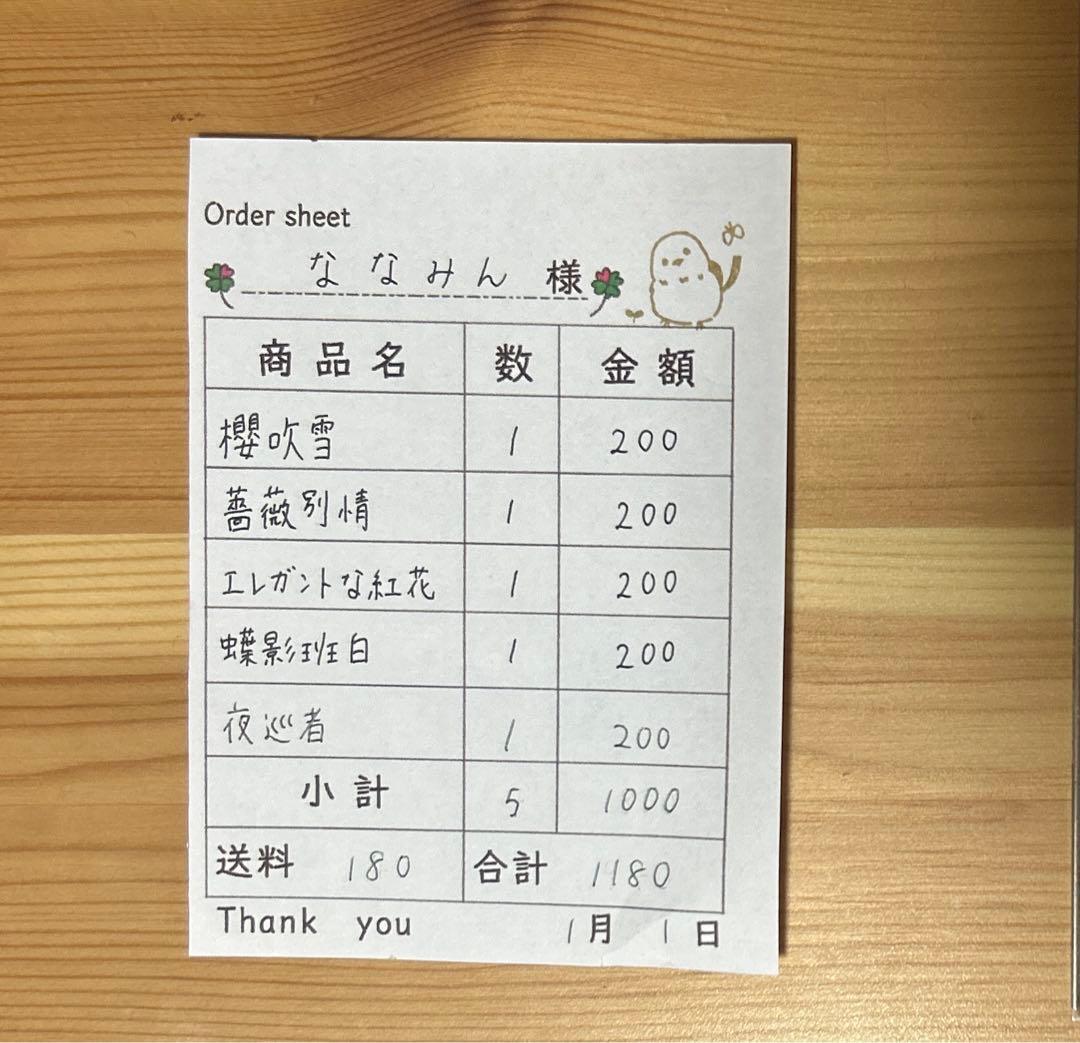 Order sheet
ななみん 様
商品名 数 金額
櫻吹雪 1 200
薔薇別情 1 200
エレガントな紅花 1 200
蝶影班白 1 200
夜巡者 1 200
小計 5 1000
送料 180 合計 1180
Thank you 1月 1日